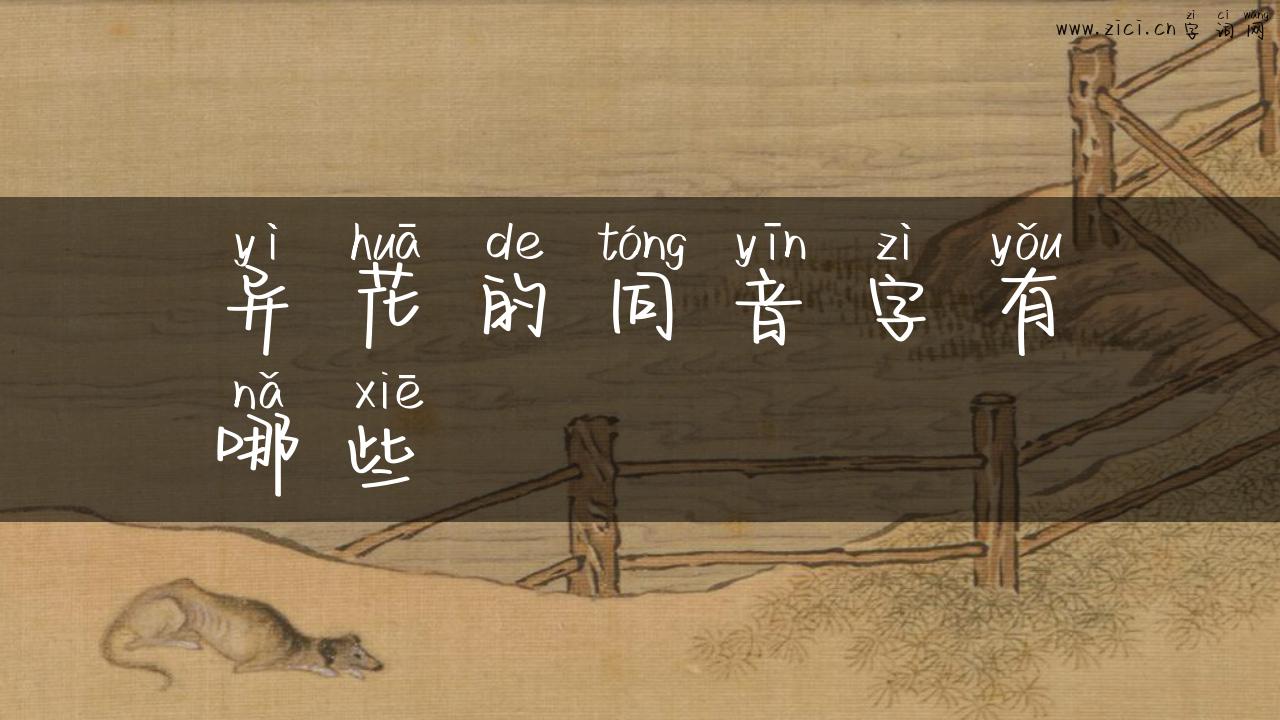 zì cí wǎng
www.zici.cn字词网
yì huā de tóng yīn zì yǒu
异花的同音字有
nǎ xiē
哪些